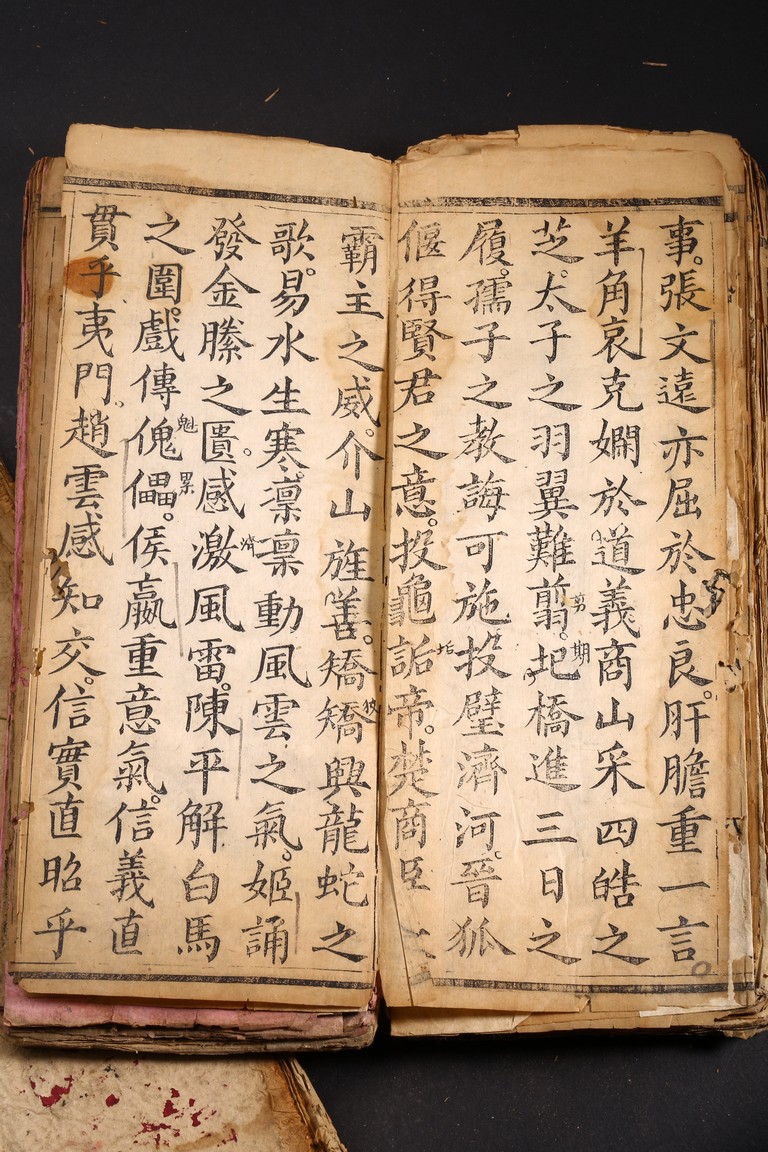 事。張文遠亦屈於忠良。肝膽重一言。
羊角哀克嫻於道義商山采四皓之
芝。太子之羽翼難翦剪。圯期橋進三日之
履。孺子之教誨可施投璧濟河。晉狐
偃得賢君之意。投龜詬垢帝。焚商臣
霸主之威。介山旌善。矯矯狡興龍蛇之
歌。易水生寒。凛凛動風雲之氣。姬誦
發金縢之匱。感激風雷。陳平解白馬
之圍。戲傳傀魁儡累。侯嬴重意氣。信義直
貫乎夷門。趙雲感知交。信實直昭乎